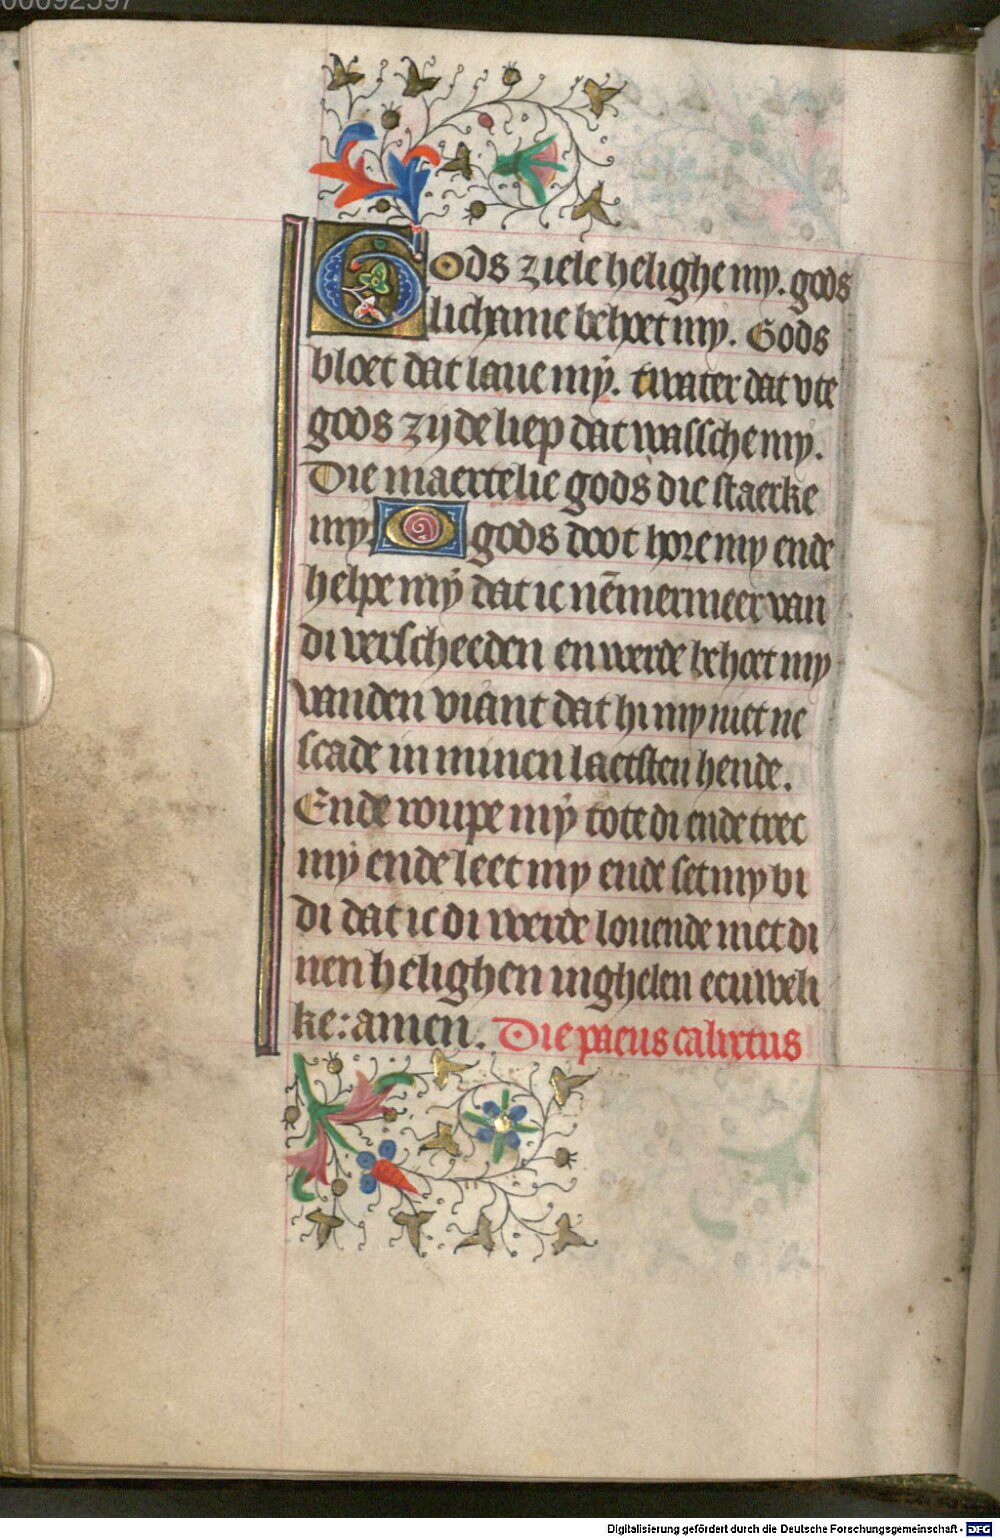 00092597
Gods ziele helighe my. gods
lichame behoet my. Gods
bloet dat laue mÿ. twater dat vte
gods zijde liep dat wassche my.
Die maertelie gods die staerke
my. O gods doot hore my ende
helpe mÿ dat ic nēmermeer van
di verscheeden en werde behoet my
vanden viant dat hi my niet ne
scade in minen laetsten hende.
Ende roupe mÿ tote di ende trec
mÿ ende leet my ende set my bi
di dat ic di werde louende met di
nen helighen inghelen eeuweli
ke: amen. Die paeus calixtus
Digitalisierung gefördert durch die Deutsche Forschungsgemeinschaft - DFG